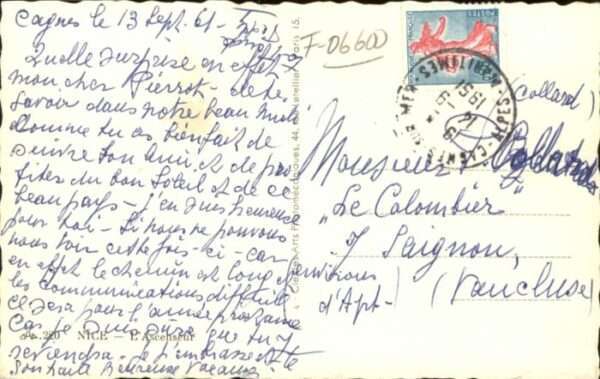 Cagnes le 13 Sept. 61 -
Quelle surprise en effet
mon cher Pierrot - de te
savoir dans notre beau midi
Comme tu as bien fait de
suivre ton ami et de pro
fiter du bon Soleil et de ce
beau pays - j'en suis heureuse
pour toi - Si nous ne pouvons
nous voir cette fois-ci, car
en effet le chemin est long
les communications difficiles
ce sera pour l'année prochaine
Car je suis sûre que tu y
reviendras. Je t'embrasse et te
souhaite heureuse vacances
280 NICE - L'Ascenseur
F-06600
POSTES
CAGNES-SUR-MER
ALPES-MARITIMES
1961
(Collard)
Monsieur Collard
"Le Colombier"
Saignon,
environs
d'Apt - (Vaucluse)